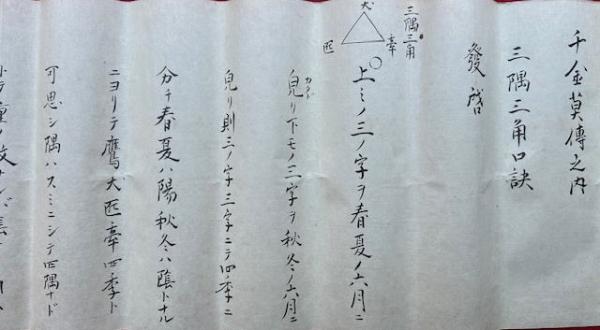 千金莫傳之内
三隅三角口訣
發啓
三隅三角
犬
牽
匹
上ミノ三ノ字ヲ春夏ノ六月ニ
皃リ下モノ三字ヲ秋冬ノ六月ニ
皃リ則三ノ字三字ニテ四季ニ
分チ春夏ハ陽秋冬ハ陰トナル
ニヨリテ鷹犬匹牽四季ト
可思シ隅ハスミニシテ四隅ナド